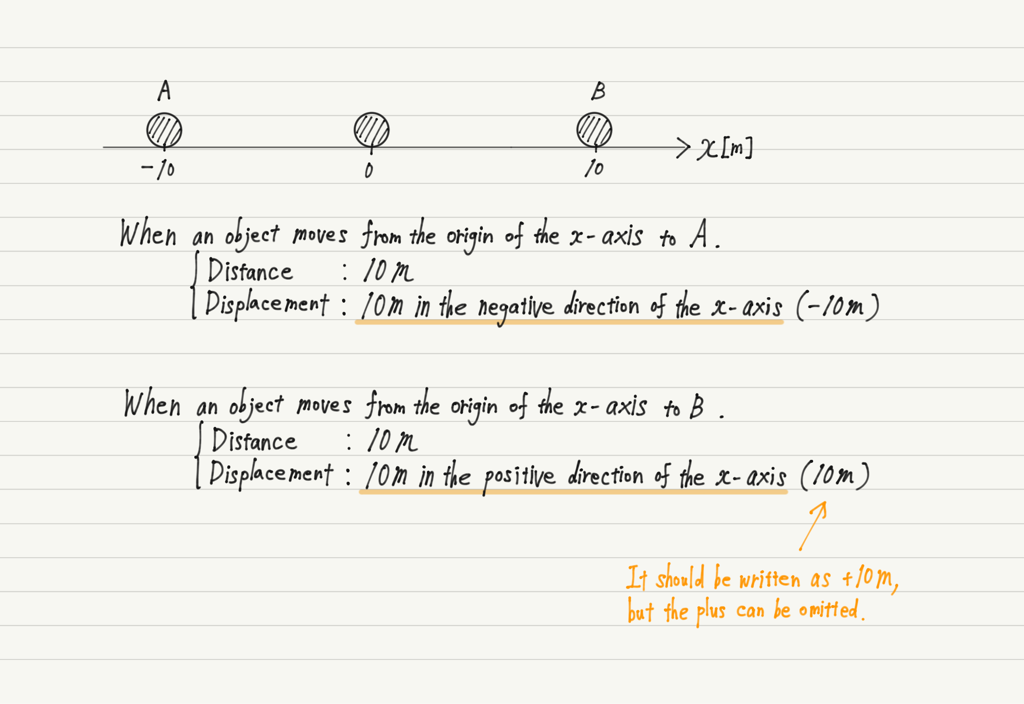 A B
x[m]
-10 0 10
When an object moves from the origin of the x-axis to A.
Distance : 10m
Displacement : 10m in the negative direction of the x-axis (-10m)
When an object moves from the origin of the x-axis to B.
Distance : 10m
Displacement : 10m in the positive direction of the x-axis (10m)
It should be written as +10m,
but the plus can be omitted.